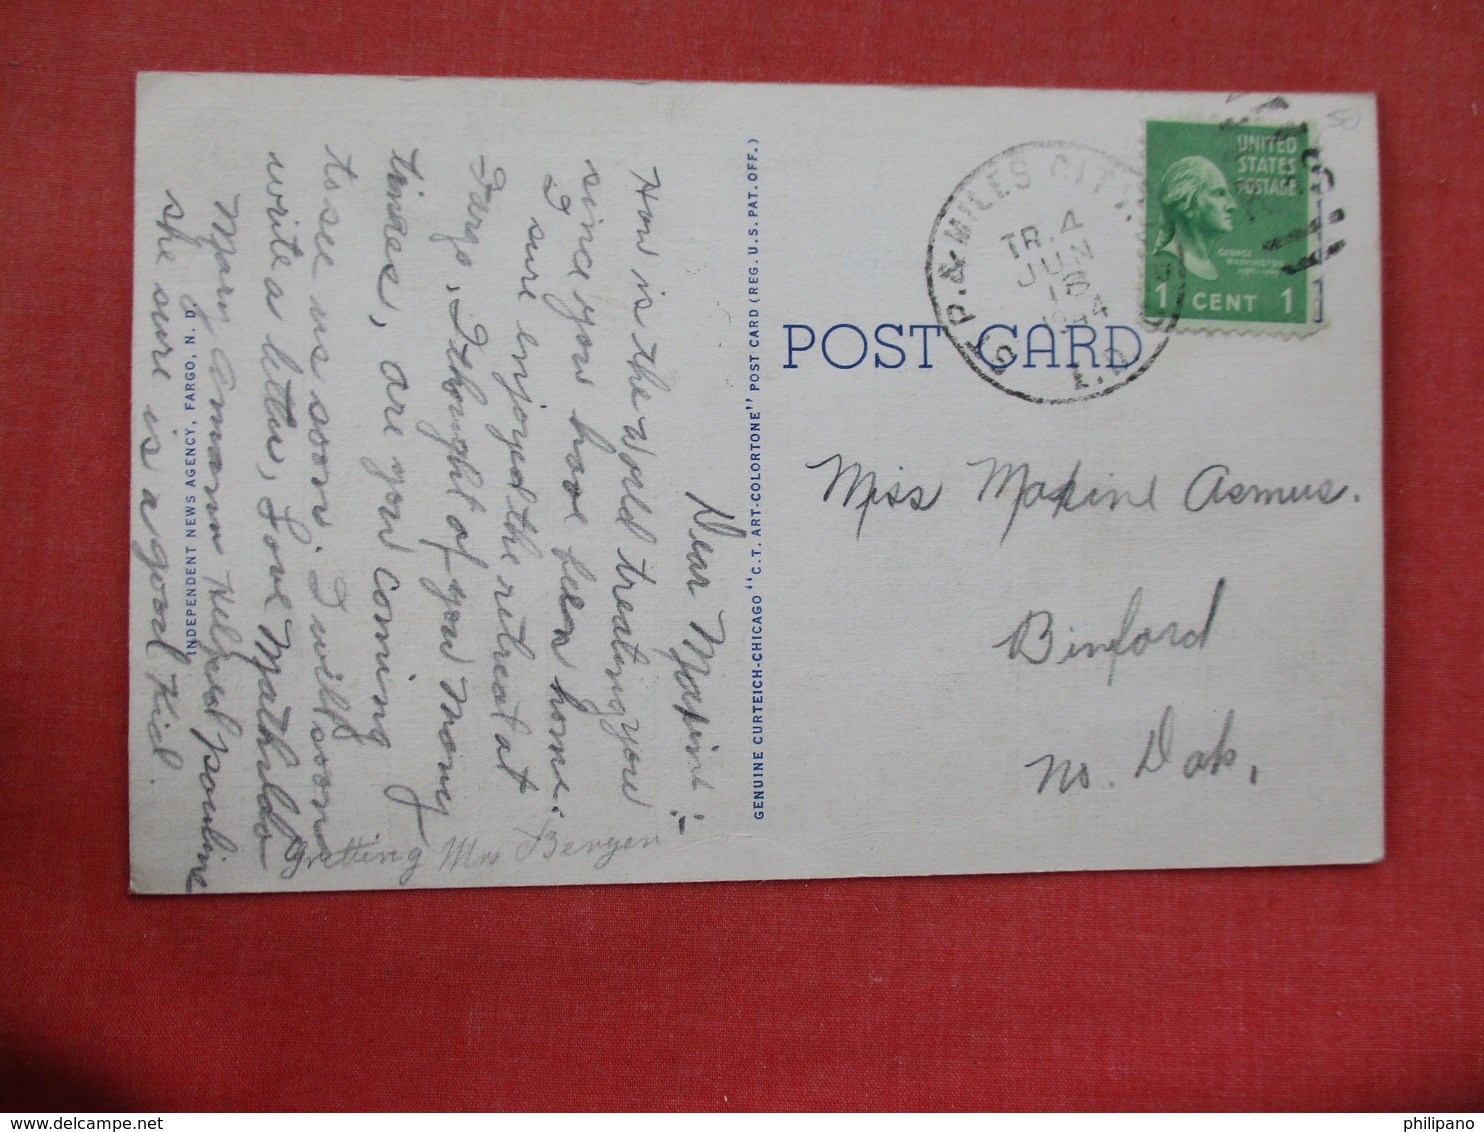 Dear Maxine:-
How is the world treating you
since you have been home.
I sure enjoyed the retreat at
Fargo, I thought of you many
times, are you coming
to see us soon. I will soon
write a letter, Love Mathilda
Mary Ammann helped pauline
she sure is a good kid.
Gretting Mrs Bergen
INDEPENDENT NEWS AGENCY, FARGO, N. D.
GENUINE CURTEICH-CHICAGO "C.T. ART-COLORTONE" POST CARD (REG. U.S. PAT. OFF.)
POST CARD
ST P. & MILES CITY
TR. 4
JUN
1944
R.P.O.
UNITED
STATES
POSTAGE
GEORGE
WASHINGTON
1 CENT 1
Miss Maxine Asmus.
Binford
No. Dak.
philipano